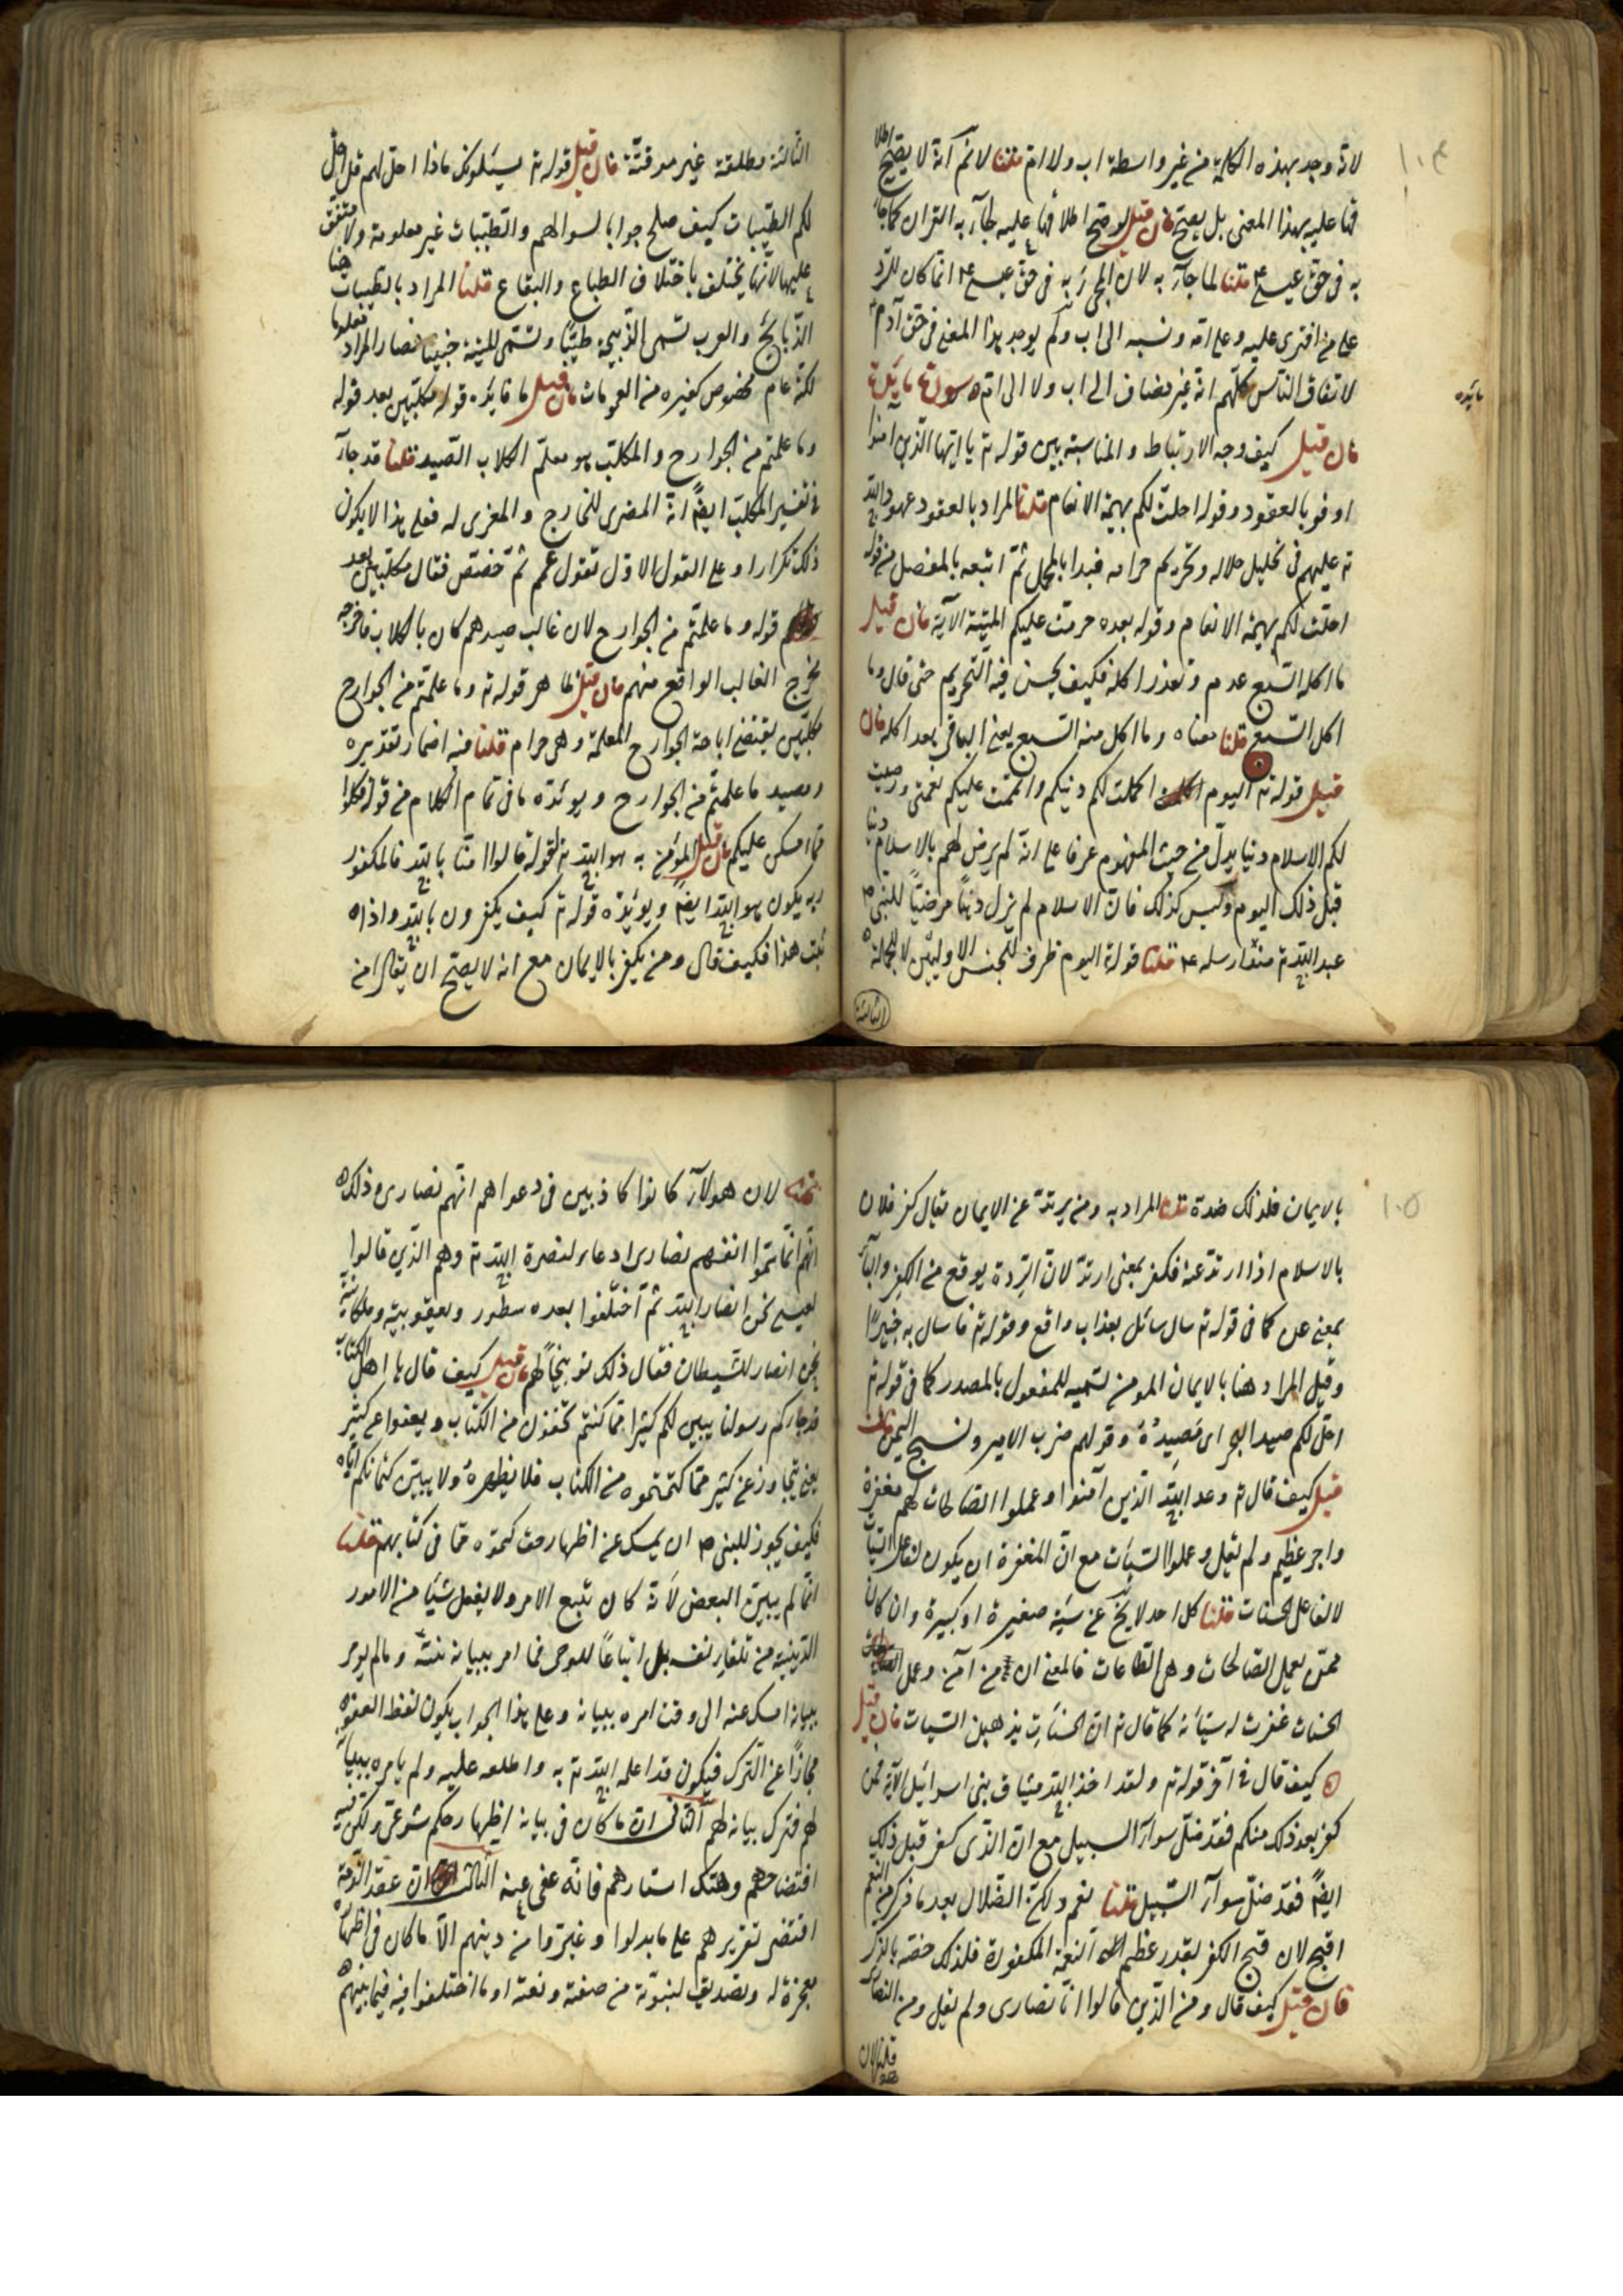 ١٠٤
لانه وجد بهذه الكلمة من غير واسطة اب ولا ام قلنا لا نم انه لا يصح اطلا
قها عليه بهذا المعنى بل يصح فان قيل لو صح اطلاقها عليه لجاء به القران كما جاء
به فى حق عيسى ع م قلنا لما جاء به لان المجئ به فى حق عيسى ع م انما كان للرد
على من افترى عليه وعلى امه ونسبه الى اب ولم يوجد هذا المعنى فى حق آدم
لاتفاق الناس كلهم انه غير مضاف الى اب ولا الى ام سورة مائدة
مايده
فان قيل كيف وجه الارتباط والمناسبة بين قوله ته يا ايها الذين امنوا
اوفوا بالعقود وقوله احلت لكم بهيمة الانعام قلنا المراد بالعقود عهود الله
ته عليهم فى تحليل حلاله وتحريم حرامه فبدا بالمجمل ثم اتبعه بالمفصل من قوله
احلت لكم بهيمة الانعام وقوله بعده حرمت عليكم الميتة الآية فان قيل
ما اكله السبع عدم وتعذر اكله فكيف يحسن فيه التحريم حتى قال وما
اكل السبع قلنا معناه وما اكل منه السبع يعنى الباقى بعد اكله فان
قيل قوله ته اليوم اكملت لكم دينكم واتممت عليكم نعمتى ورضيت
لكم الاسلام دينا يدل من حيث المفهوم عرفا على انه لم يرض لهم بالاسلام دينا
قبل ذلك اليوم وليس كذلك فان الاسلام لم يزل دينا مرضيا للنبى ص
عند الله ته منذ ارسله ع م قلنا قوله اليوم ظرف للجنس الاوليين لا للجملة
الثالثة
الثالثة مطلقة غير موقتة فان قيل قوله ته يسئلونك ماذا احل لهم قل احل
لكم الطيبات كيف صلح جوابا لسوالهم والطيبات غير معلومة ولا متفق
عليها لانها يختلف باختلاف الطباع والبقاع قلنا المراد بالطيبات هنا
الذبايح والعرب تسمى الذبيحة طيبا وتسمى الميتة خبيثا فصار المراد معلوما
لكنه عام مخصوص كغيره من العمومات فان قيل ما فايده قوله مكلبين بعد قوله
وما علمتم من الجوارح والمكلب هو معلم الكلاب الصيد قلنا قد جاء
فى تفسير المكلب ايضا انه المضرى للجارح والمغرى له فعلى هذا لا يكون
ذلك تكرارا وعلى القول الاول نقول عمم ثم خصص فقال مكلبين بعد
قوله وما علمتم من الجوارح لان غالب صيدهم كان بالكلاب فاخرجه
مخرج الغالب الواقع منهم فان قيل ظاهر قوله ته وما علمتم من الجوارح
مكلبين يقتضى اباحة الجوارح المعلمة وهى حرام قلنا فيه اضمار تقديره
وصيد ما علمتم من الجوارح ويويده ما فى تمام الكلام من قوله فكلوا
مما امسكن عليكم فان قيل المؤمن به هو الله ته لقوله قالوا امنا بالله فالمكفور
به يكون هو الله ايضا ويويده قوله ته كيف يكفرون بالله واذا
ثبت هذا فكيف قال ومن يكفر بالايمان مع انه لا يصح ان يقال امن
١٠٥
بالايمان فلذلك ضده قلنا المراد به ومن يرتد عن الايمان يقال كفر فلان
بالاسلام اذا ارتد عنه فكفر بمعنى ارتد لان الردة يوقع من الكفر والباء
بمعنى عن كما فى قوله ته سال سائل بعذاب واقع وقوله ته فاسال به خبيرا
وقيل المراد هنا بالايمان المومن تسميه للمفعول بالمصدر كما فى قوله ته
احل لكم صيد البحر اى مَصِيدُه وقولهم ضرب الامير ونسج اليمن فان
قيل كيف قال ته وعد الله الذين آمنوا وعملوا الصالحات لهم مغفرة
واجر عظيم ولم يقل وعملوا السيئات مع ان المغفرة ان يكون لفاعل السيات
لا لفاعل الحسنات قلنا كل احد لا يخ عن سيئة صغيرة او كبيرة وان كان
ممن يعمل الصالحات وهى الطاعات فالمعنى ان من آمن وعمل
الحسنات غفرت له سيآته كما قال ته ان الحسنات يذهبن السيات فان قيل
كيف قال فى آخر قوله ته ولقد اخذ الله ميثاق بنى اسرائيل الآية فمن
كفر بعد ذلك منكم فقد ضل سواء السبيل مع ان الذى كفر قبل ذلك
ايضا فقد ضل سواء السبيل قلنا نعم ولكن الضلال بعد ما ذكر من النعم
اقبح لان قبح الكفر بقدر عظم النعمة المكفورة فلذلك خصه بالذكر
فان قيل كيف قال ومن الذين قالوا انا نصارى ولم يقل ومن النصارى
قلنا لان
لان هولاء كانوا كاذبين فى دعواهم انهم نصارى وذلك
انهم انما سموا انفسهم نصارى ادعاء لنصرة الله ته وهم الذين قالوا
لعيسى نحن انصار الله ثم اختلفوا بعده سطور ويعقوبيه وملكانية
نحن انصار للشيطان فقال ذلك توبيخا لهم فان قيل كيف قال يا اهل الكتاب
قد جاءكم رسولنا يبين لكم كثيرا مما كنتم تخفون من الكتاب ويعفوا عن كثير
يعنى يتجاوز عن كثير مما كتمتموه من الكتاب فلا يظهره ولا يبين كتمانكم اياه
فكيف يجوز للنبى ص ان يمسك عن اظهار حق كتموه مما فى كتابهم قلنا
انما لم يبين البعض لانه كان يتبع الامر ولا يفعل شيئا من الامور
الدينية من تلقاء نفسه بل اتباعا للوحى فما امر ببيانه بينه وما لم يومر
ببيانه امسك عنه الى وقت امره ببيانه وعلى هذا الجواب يكون لفظ العفو
مجازا عن الترك فيكون قد اعلمه الله ته به واطلعه عليه ولم يامره ببيانه
لهم فترك بيانه لهم الثانى ان ما كان فى بيانه اظهار حكم شرعى ولكن فيه
افتضاحهم وهتك استارهم فانه عفى عنه الثالث ان عقد الذمة
اقتضى تقريرهم على ما بدلوا وغيروا من دينهم الا ما كان فى اظهاره
معجزة له وتصديق لنبوته من صفته ونعته او ما اختلفوا فيه فيما بينهم